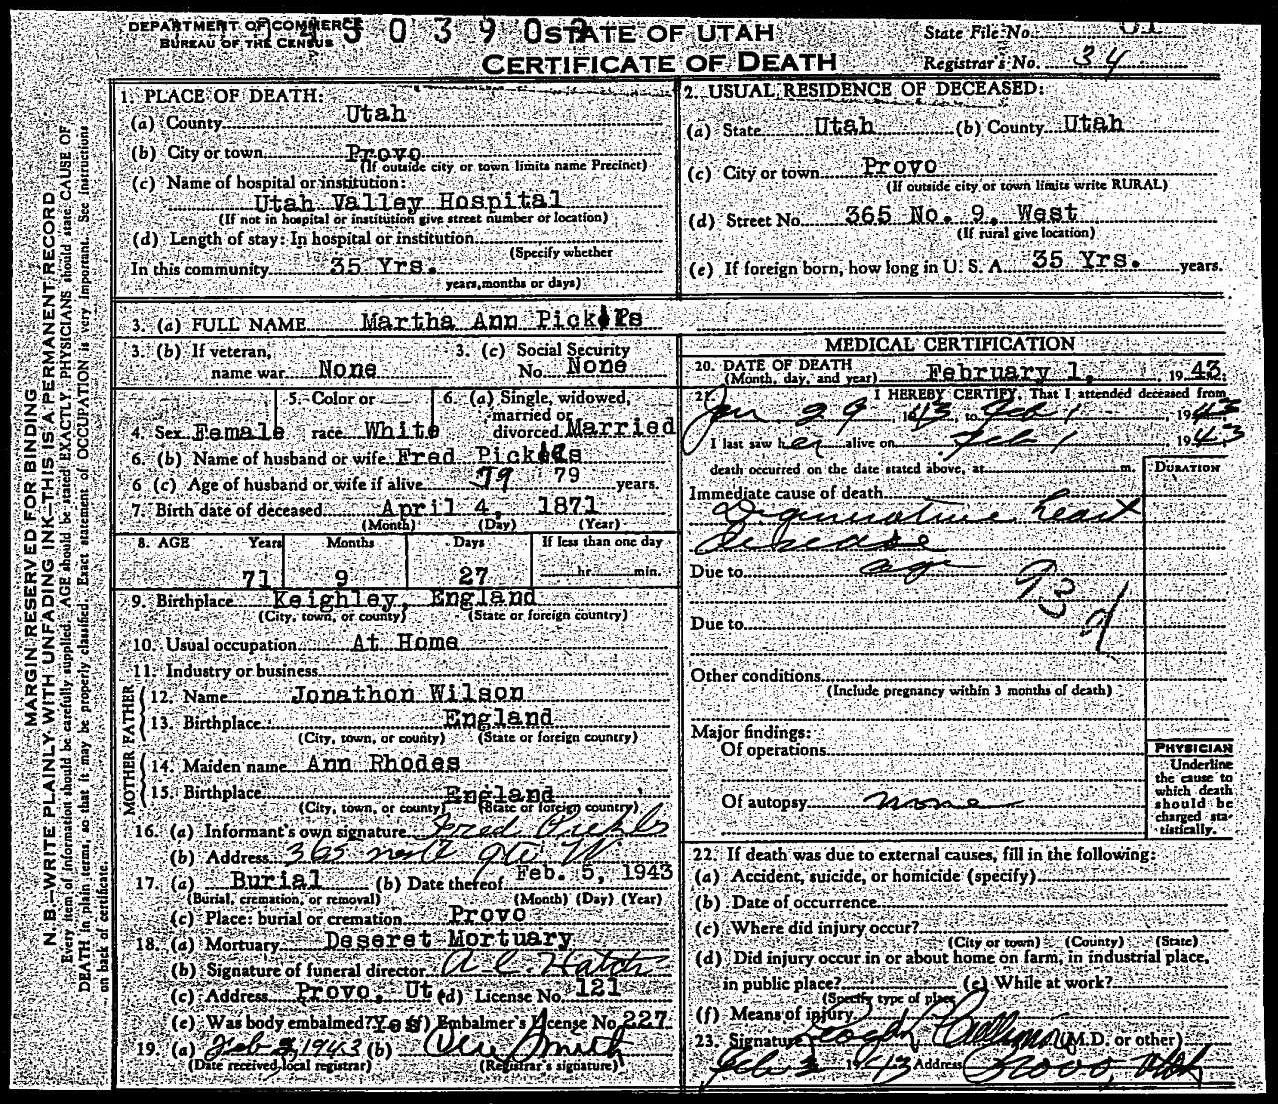 DEPARTMENT OF COMMERCE
BUREAU OF THE CENSUS
STATE OF UTAH
CERTIFICATE OF DEATH
State File No.
Registrar's No. 34
MARGIN RESERVED FOR BINDING
N. B.—WRITE PLAINLY WITH UNFADING INK—THIS IS A PERMANENT RECORD
Every item of information should be carefully supplied. AGE should be stated EXACTLY. PHYSICIANS should state CAUSE OF
DEATH in plain terms, so that it may be properly classified. Exact statement of OCCUPATION is very important. See instructions
on back of certificate.
1. PLACE OF DEATH:
(a) County Utah
(b) City or town Provo
(If outside city or town limits name Precinct)
(c) Name of hospital or institution:
Utah Valley Hospital
(If not in hospital or institution give street number or location)
(d) Length of stay: In hospital or institution
(Specify whether
In this community 35 Yrs.
years, months or days)
2. USUAL RESIDENCE OF DECEASED:
(a) State Utah (b) County Utah
(c) City or town Provo
(If outside city or town limits write RURAL)
(d) Street No. 365 No. 9. West
(If rural give location)
(e) If foreign born, how long in U. S. A. 35 Yrs. years.
3. (a) FULL NAME Martha Ann Pickles
3. (b) If veteran, name war None
3. (c) Social Security No. None
4. Sex Female
5. Color or race White
6. (a) Single, widowed, married or divorced Married
6. (b) Name of husband or wife Fred Pickles
6 (c) Age of husband or wife if alive 79 79 years.
7. Birth date of deceased April 4, 1871
(Month) (Day) (Year)
8. AGE Years Months Days If less than one day
71 9 27 hr. min.
9. Birthplace Keighley, England
(City, town, or county) (State or foreign country)
10. Usual occupation At Home
11. Industry or business
FATHER
12. Name Jonathon Wilson
13. Birthplace England
(City, town, or county) (State or foreign country)
MOTHER
14. Maiden name Ann Rhodes
15. Birthplace England
(City, town, or county) (State or foreign country)
16. (a) Informant's own signature Fred Pickles
(b) Address 365 North 9th W
17. (a) Burial (b) Date thereof Feb. 5, 1943
(Burial, cremation, or removal) (Month) (Day) (Year)
(c) Place: burial or cremation Provo
18. (a) Mortuary Deseret Mortuary
(b) Signature of funeral director A. C. Hatch
(c) Address Provo, Ut. (d) License No. 121
(e) Was body embalmed? Yes (f) Embalmer's License No. 227
19. (a) Feb 3, 1943 (b) Smith
(Date received local registrar) (Registrar's signature)
MEDICAL CERTIFICATION
20. DATE OF DEATH
(Month, day, and year) February 1, , 1943
21. I HEREBY CERTIFY, That I attended deceased from
Jan 29 1943 to Feb 1 1943
I last saw her alive on Feb 1 , 1943
death occurred on the date stated above, at m.
DURATION
Immediate cause of death
Degenerative heart
disease
Due to age
93 d
Due to
Other conditions
(Include pregnancy within 3 months of death)
Major findings:
Of operations
Of autopsy none
PHYSICIAN
Underline
the cause to
which death
should be
charged sta-
tistically.
22. If death was due to external causes, fill in the following:
(a) Accident, suicide, or homicide (specify)
(b) Date of occurrence
(c) Where did injury occur?
(City or town) (County) (State)
(d) Did injury occur in or about home on farm, in industrial place,
in public place? (e) While at work?
(Specify type of place)
(f) Means of injury
23. Signature (M.D. or other)
Feb 3 1943 Address Provo, Utah